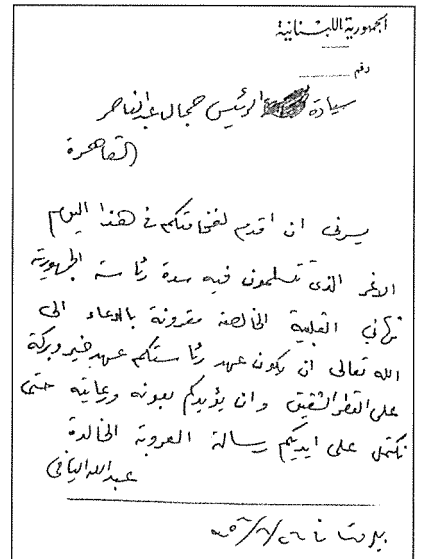 الجمهورية اللبنانية
رقم
سيادة الرئيس جمال عبد الناصر
القاهرة
يسرني ان اقدم لفخامتكم في هذا اليوم
الاغر الذي تتسلمون فيه سدة رئاسة الجمهورية
تهاني القلبية الخالصة مقرونة بالدعاء الى
الله تعالى ان يكون عهد رئاستكم عهد خير وبركة
على القطر الشقيق وان يؤيدكم بعونه ورعايته حتى
تكتمل على ايديكم رسالة العروبة الخالدة
عبد الله اليافي
بيروت في